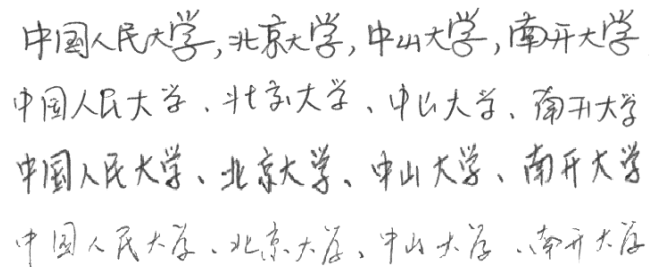 中国人民大学,北京大学,中山大学,南开大学
中国人民大学、北京大学、中山大学、南开大学
中国人民大学、北京大学、中山大学、南开大学
中国人民大学、北京大学、中山大学、南开大学